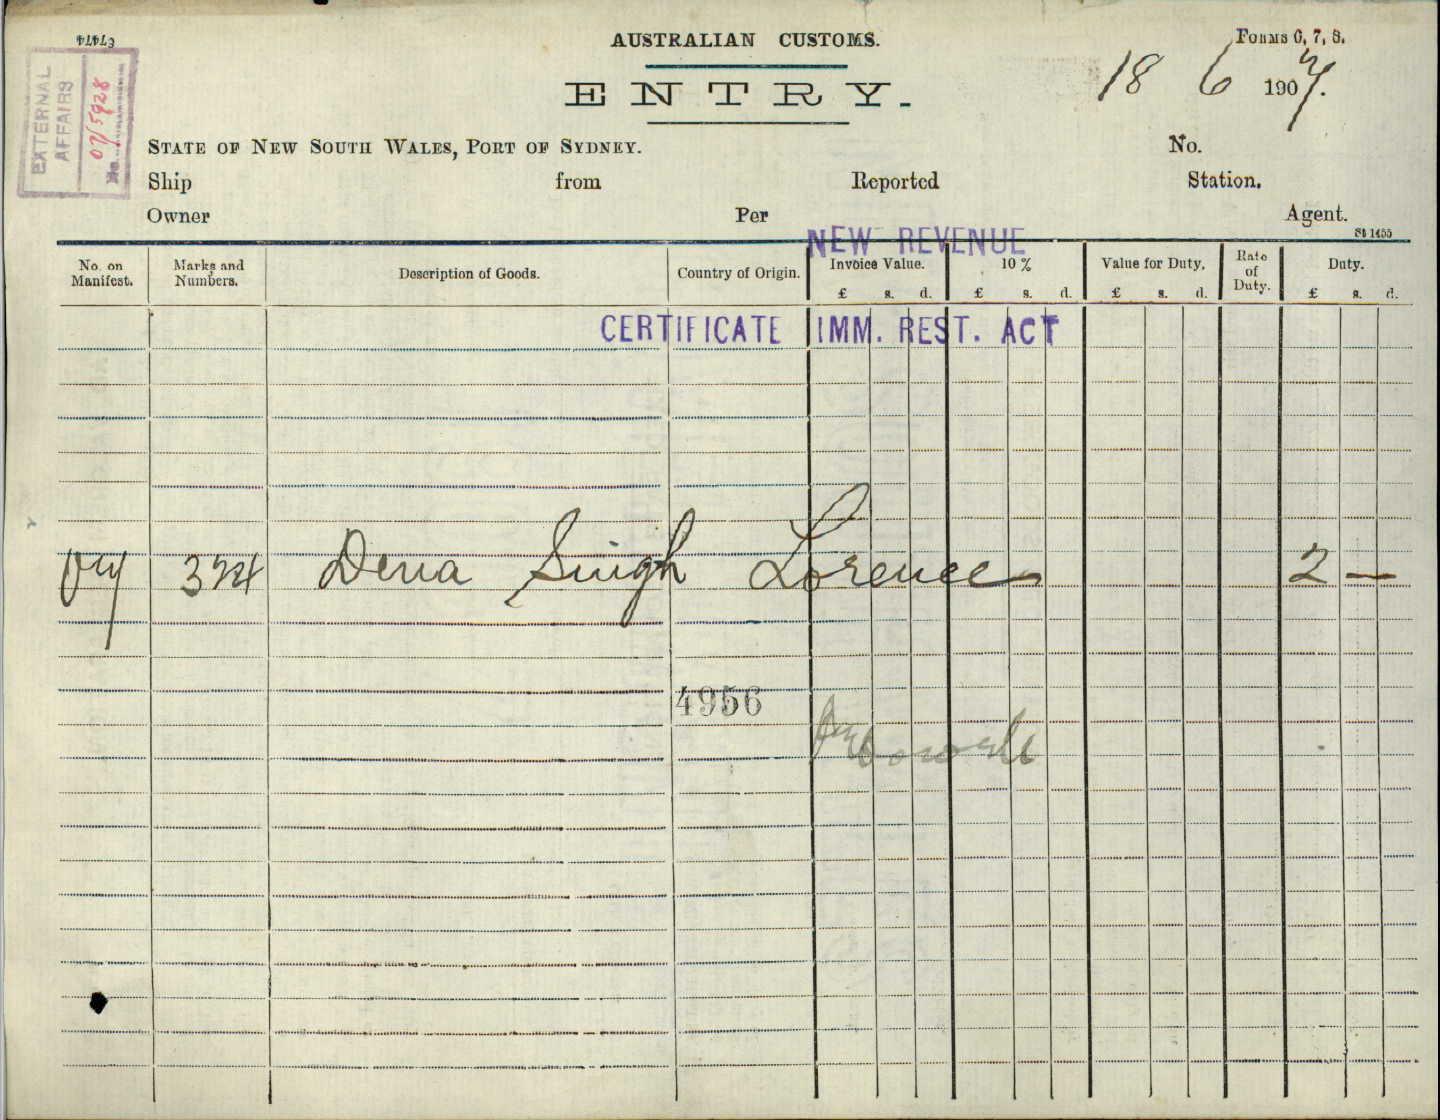 67474
AUSTRALIAN CUSTOMS.
FORMS 6, 7, 8.
EXTERNAL AFFAIRS
No. 07/5928
ENTRY.
18 6 1907.
STATE OF NEW SOUTH WALES, PORT OF SYDNEY.
No.
Ship from Reported Station.
Owner Per Agent.
St 1455
NEW REVENUE
No. on Manifest.
Marks and Numbers.
Description of Goods.
Country of Origin.
Invoice Value.
£ s. d.
10 %
£ s. d.
Value for Duty.
£ s. d.
Rate of Duty.
Duty.
£ s. d.
CERTIFICATE IMM. REST. ACT
324 Dena Singh Lorence 2 —
4956